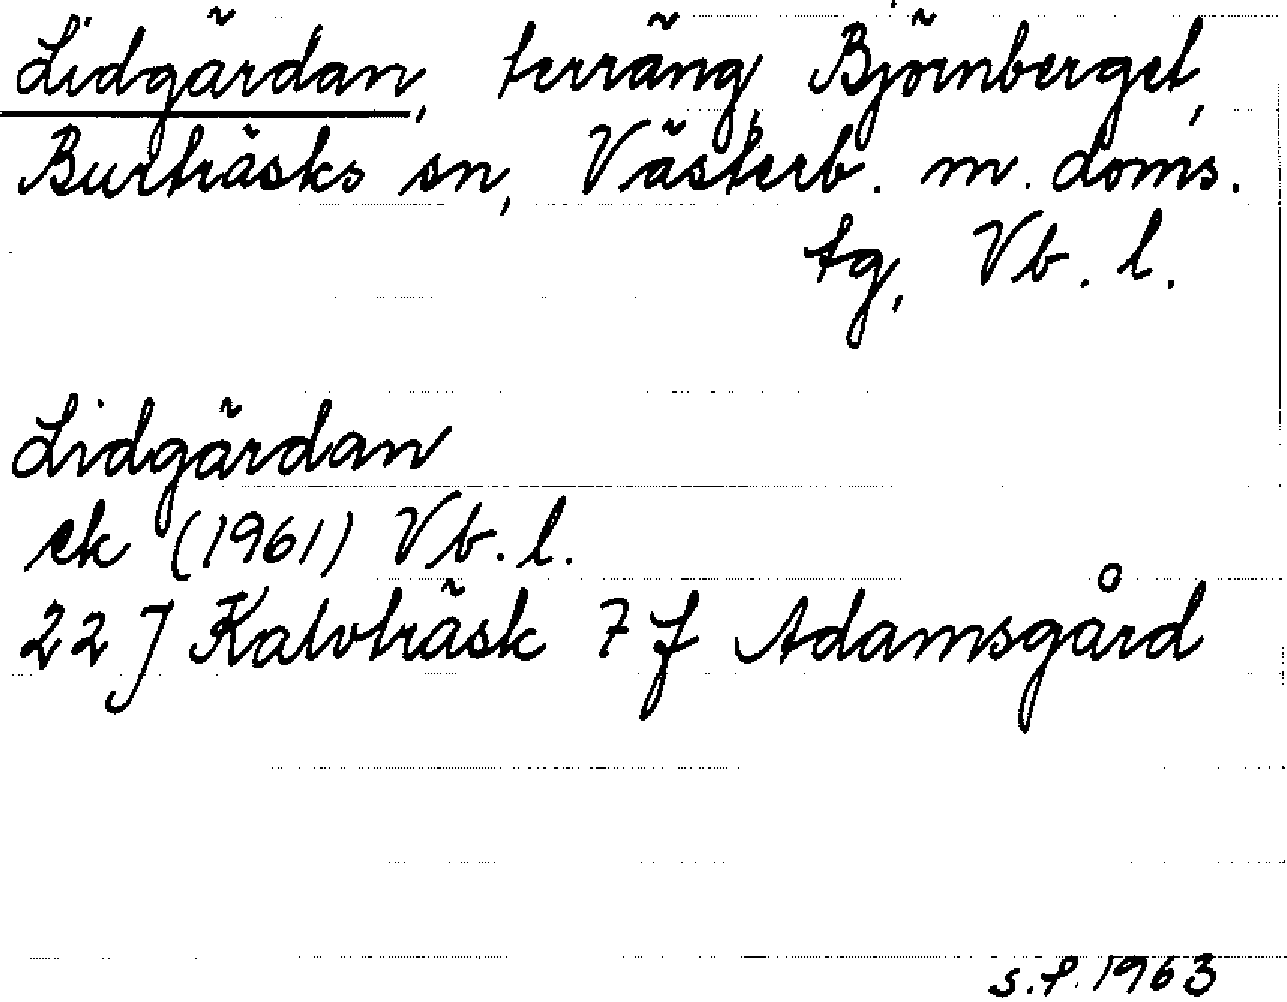 Lidgärdan, terräng, Björnberget,
Burträsks sn, Västerb. m. doms.
tg, Vb. l.
Lidgärdan
ek (1961) Vb. l.
22 J Kalvträsk 7 f Adamsgård
s.f. 1963